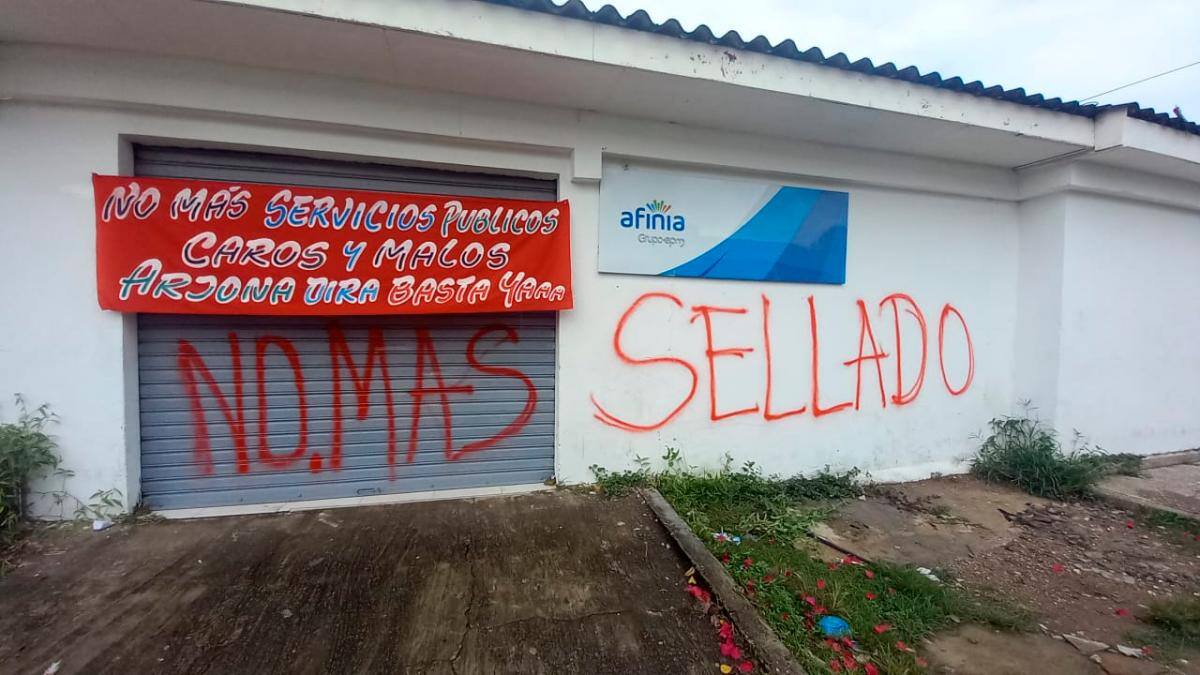 NO MÁS SERVICIOS PUBLICOS
CAROS Y MALOS
ARJONA DIRA BASTA YAaa
afinia
Grupo·epm
NO.MAS
SELLADO